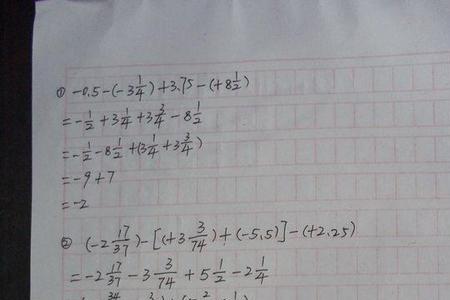 ① -0.5-(-3 1/4)+3.75-(+8 1/2)
=-1/2+3 1/4+3 3/4-8 1/2
=-1/2-8 1/2+(3 1/4+3 3/4)
=-9+7
=-2
② (-2 17/37)-[(+3 3/74)+(-5.5)]-(+2.25)
=-2 17/37-3 3/74+5 1/2-2 1/4